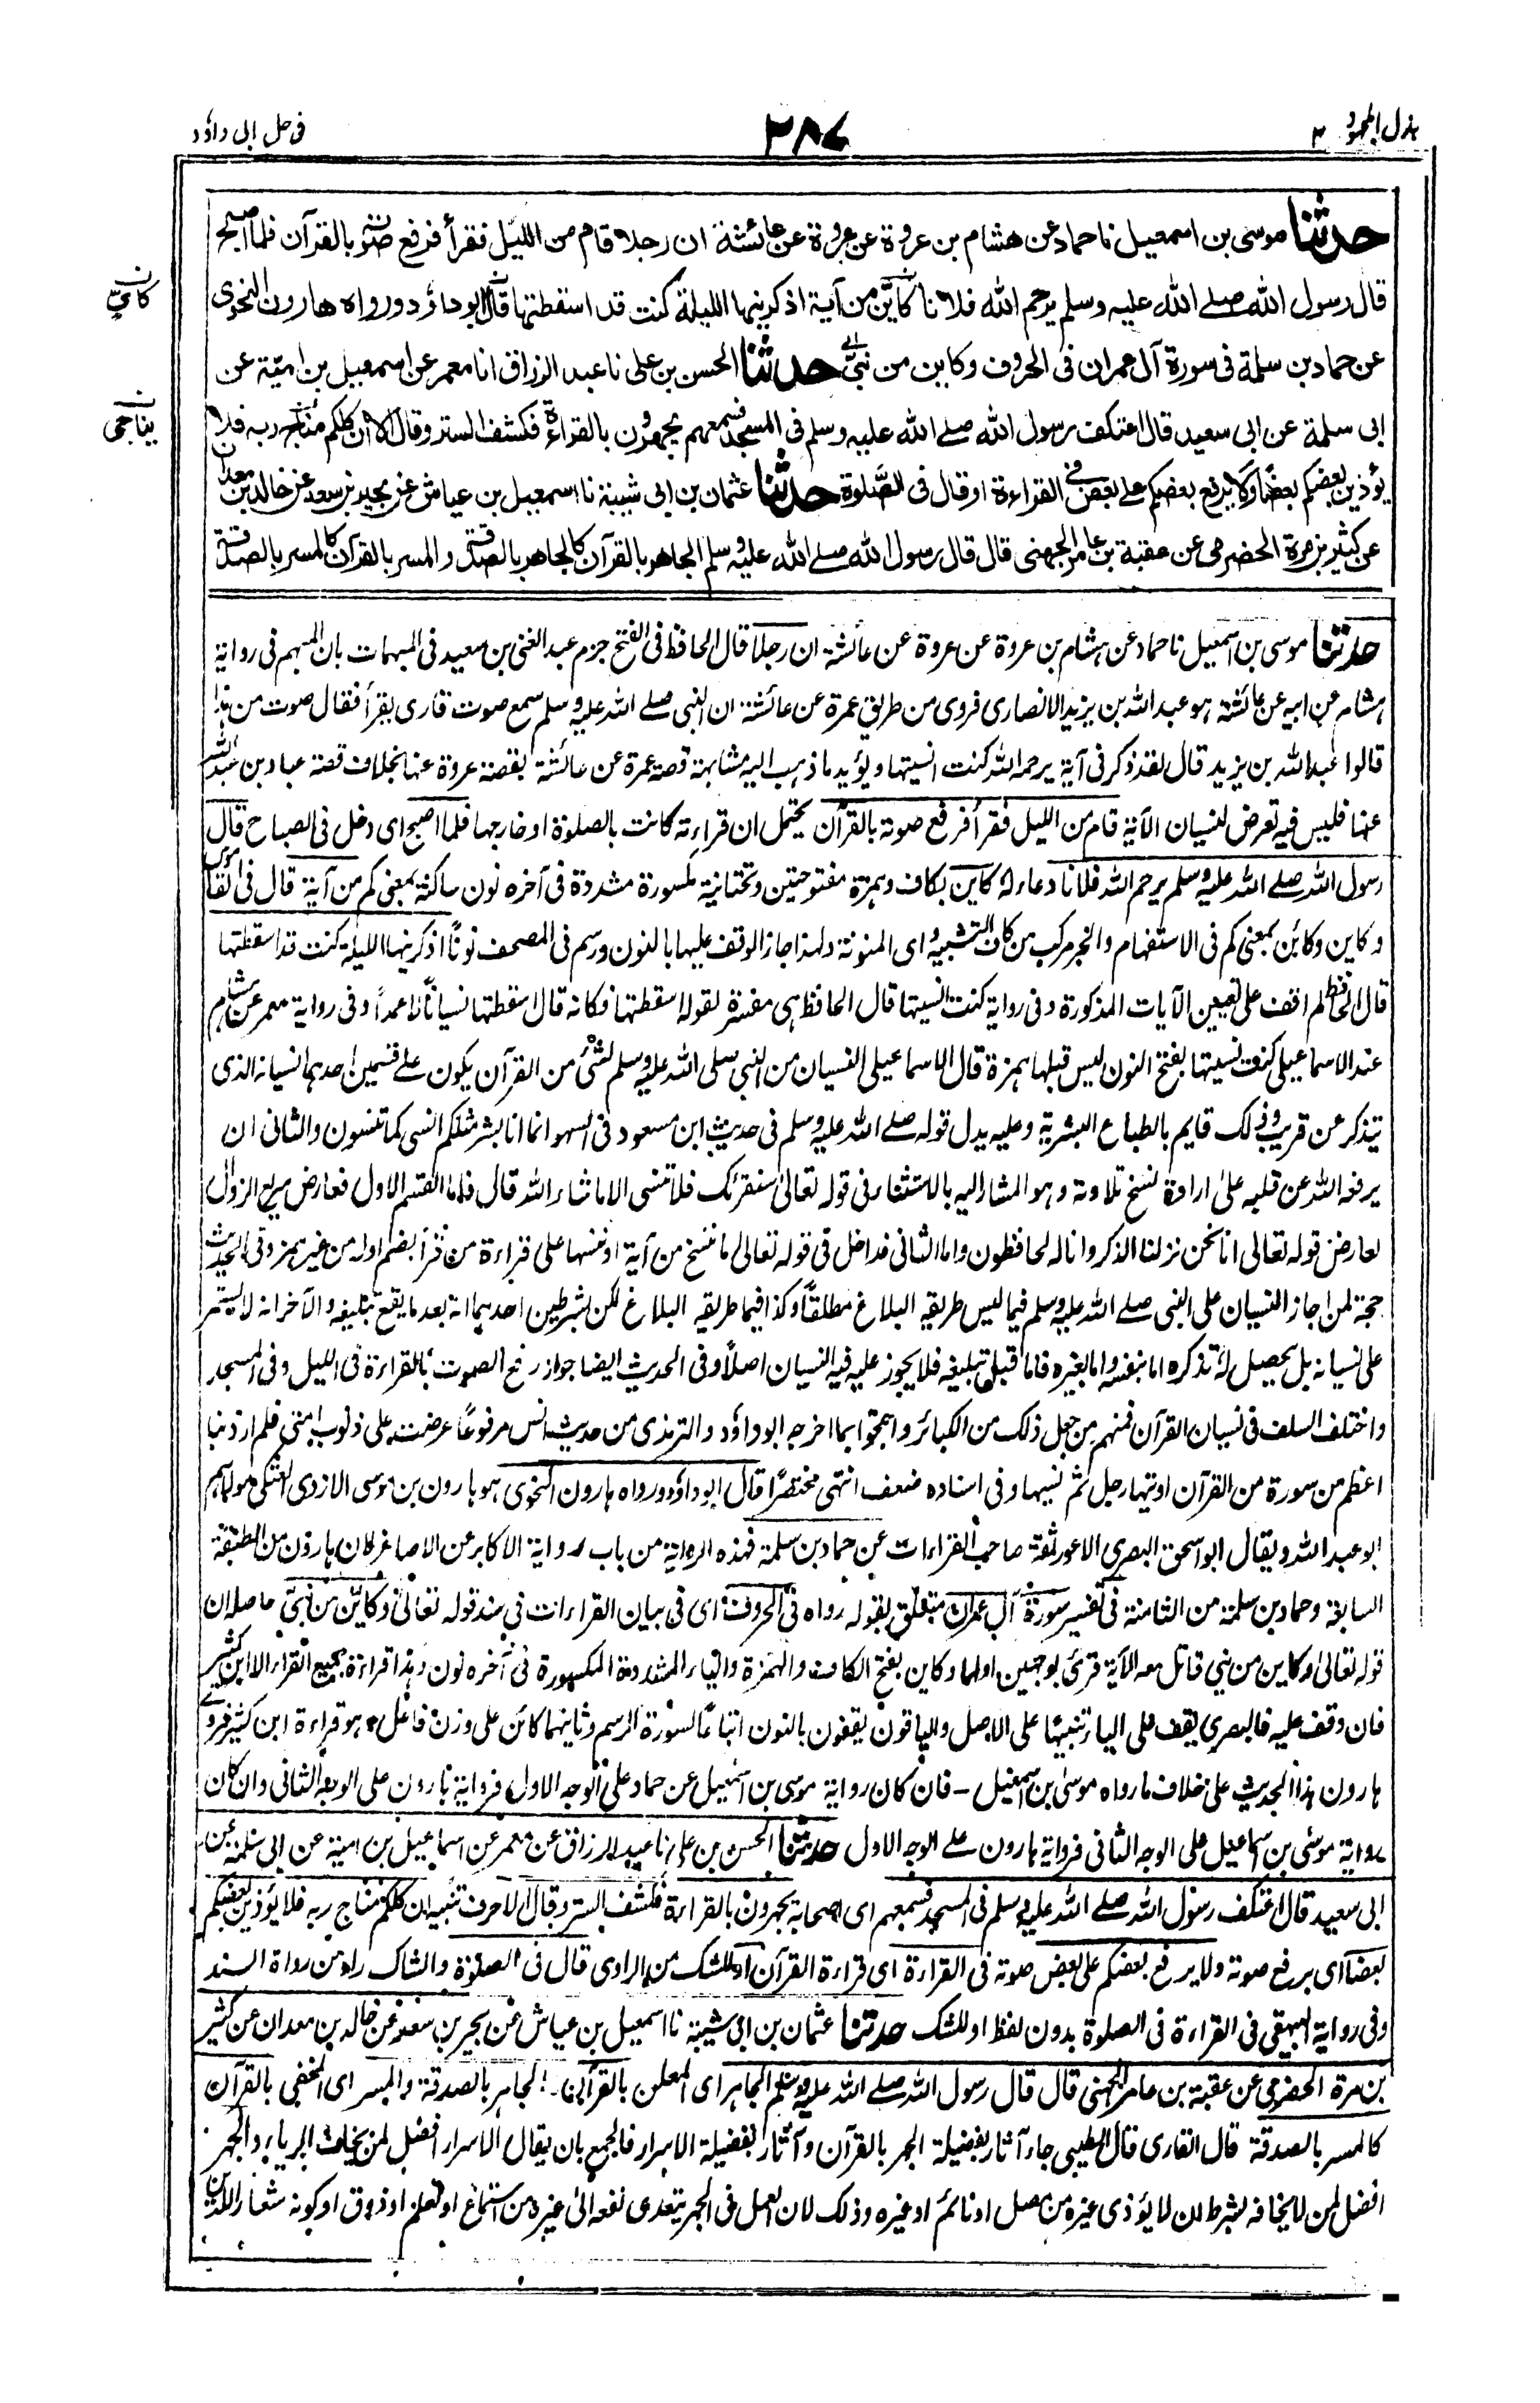 بذل المجهود ٣
٣٨٧
فى حل ابى داؤد
حدثنا موسى بن اسمعيل نا حماد عن هشام بن عروة عن عروة عن عائشة ان رجلا قام من الليل فقرأ فرفع صوته بالقرآن فلما اصبح
قال رسول الله صلے الله عليه وسلم يرحم الله فلانا كأيّن من آية اذكرنيها الليلة كنت قد اسقطتها قال ابو داؤد ورواه هارون النحوى
كائن
عن حماد بن سلمة فى سورة آل عمران فى الحروف وكاين من نبى حدثنا الحسن بن على نا عبد الرزاق انا معمر عن اسمعيل بن امية عن
ابى سلمة عن ابى سعيد قال اعتكف رسول الله صلے الله عليه وسلم فى المسجد فسمعهم يجهرون بالقراءة فكشف الستر وقال الا ان كلكم مناج ربه فلا
يناجى
يؤذين بعضكم بعضا ولا يرفع بعضكم على بعض فى القراءة او قال فى الصلوة حدثنا عثمان بن ابى شيبة نا اسمعيل بن عياش عن بحير بن سعد عن خالد بن معدان
عن كثير بن مرة الحضرمى عن عقبة بن عامر الجهنى قال قال رسول الله صلے الله عليه وسلم الجاهر بالقرآن كالجاهر بالصدقة والمسر بالقرآن كالمسر بالصدقة
حدثنا موسى بن اسمعيل نا حماد عن هشام بن عروة عن عروة عن عائشة ان رجلا قال الحافظ فى الفتح جزم عبد الغنى بن سعيد فى المبهمات بان المبهم فى رواية
هشام عن ابيه عن عائشة هو عبد الله بن يزيد الانصارى فروى من طريق عمرة عن عائشة ان النبى صلے الله عليه وسلم سمع صوت قارى يقرأ فقال صوت من هذا
قالوا عبد الله بن يزيد قال لقد ذكرنى آية يرحمه الله كنت انسيتها ويؤيد ما ذهب اليه مشابهة قصة عمرة عن عائشة بقصة عروة عنها بخلاف قصة عباد بن عبد الله
عنها فليس فيه تعرض لنسيان الآية قام من الليل فقرأ فرفع صوته بالقرآن يحتمل ان قراءته كانت بالصلوة او خارجها فلما اصبح اى دخل فى الصباح قال
رسول الله صلے الله عليه وسلم يرحم الله فلانا دعاء له كاين بكاف وهمزة مفتوحتين وتحتانية مكسورة مشددة فى آخره نون ساكنة بمعنى كم من آية قال فى القاموس
وكاين وكائن بمعنى كم فى الاستفهام والخبر مركب من كاف التشبيه واى المنونة ولهذا جاز الوقف عليها بالنون ورسم فى المصحف نونًا اذكرنيها الليلة كنت قد اسقطتها
قال الحافظ لم اقف على تعيين الآيات المذكورة وفى رواية كنت انسيتها قال الحافظ هى مفسرة لقوله اسقطتها فكانه قال اسقطتها نسيانًا لا عمداً وفى رواية معمر عن هشام
عند الاسماعيلى كنت نسيتها بفتح النون ليس قبلها همزة قال الاسماعيلى النسيان من النبى صلى الله عليه وسلم لشئ من القرآن يكون على قسمين احدهما نسيانه الذى
يتذكر عن قريب وذلك قايم بالطباع البشرية وعليه يدل قوله صلے الله عليه وسلم فى حديث ابن مسعود فى السهو انما انا بشر مثلكم انسى كما تنسون والثانى ان
يرفعه الله عن قلبه على ارادة نسخ تلاوته وهو المشار اليه بالاستثناء فى قوله تعالى سنقرئك فلا تنسى الا ما شاء الله قال فاما القسم الاول فعارض سريع الزوال
لعارض قوله تعالى انا نحن نزلنا الذكر وانا له لحافظون واما الثانى فداخل فى قوله تعالى ما ننسخ من آية او ننسها على قراءة من قرأ بضم اوله من غير همز وفى الحديث
حجة لمن اجاز النسيان على النبى صلے الله عليه وسلم فيما ليس طريقه البلاغ مطلقًا وكذا فيما طريقه البلاغ لكن بشرطين احدهما انه بعد ما يقع تبليغه والآخر انه لا يستمر
على نسيانه بل يحصل له تذكره اما بنفسه واما بغيره فاما قبل تبليغه فلا يجوز عليه فيه النسيان اصلاً وفى الحديث ايضا جواز رفع الصوت بالقراءة فى الليل وفى المسجد
واختلف السلف فى نسيان القرآن فمنهم من جعل ذلك من الكبائر واحتجوا بما اخرجه ابو داؤد والترمذى من حديث انس مرفوعًا عرضت على ذنوب امتى فلم ار ذنبا
اعظم من سورة من القرآن اوتيها رجل ثم نسيها وفى اسناده ضعف انتهى مختصرًا قال ابو داؤد ورواه هارون النحوى هو هارون بن موسى الازدى العتكى مولاهم
ابو عبد الله ويقال ابو اسحق البصرى الاعور ثقة صاحب القراءات عن حماد بن سلمة فهذه الرواية من باب رواية الاكابر عن الاصاغر لان هارون من الطبقة
السابعة وحماد بن سلمة من الثامنة فى تفسير سورة آل عمران متعلق بقوله رواه فى الحروف اى فى بيان القراءات فى سند قوله تعالى وكائن من نبى حاصله ان
قوله تعالى وكاين من نبى قاتل معه الآية قرئ بوجهين اولهما وكاين بفتح الكاف والهمزة والياء المشددة المكسورة فى آخره نون وهذا قراءة جميع القراء الا ابن كثير
فان وقف عليه فالبصرى يقف على الياء تنبيهًا على الاصل والباقون يقفون بالنون اتباعًا لصورة الرسم وثانيهما كائن على وزن فاعل وهو قراءة ابن كثير فروى
هارون هذا الحديث على خلاف ما رواه موسى بن اسمعيل - فان كان رواية موسى بن اسمعيل عن حماد على الوجه الاول فرواية هارون على الوجه الثانى وان كان
رواية موسى بن اسماعيل على الوجه الثانى فرواية هارون على الوجه الاول حدثنا الحسن بن على نا عبد الرزاق عن معمر عن اسماعيل بن امية عن ابى سلمة عن
ابى سعيد قال اعتكف رسول الله صلے الله عليه وسلم فى المسجد فسمعهم اى اصحابه يجهرون بالقراءة فكشف الستر وقال الا حرف تنبيه ان كلكم مناج ربه فلا يؤذين بعضكم
بعضا اى برفع صوته ولا يرفع بعضكم على بعض صوته فى القراءة اى قراءة القرآن او للشك من الراوى قال فى الصلوة والشاك راو من رواة السند
وفى رواية البيهقى فى القراءة فى الصلوة بدون لفظ او للشك حدثنا عثمان بن ابى شيبة نا اسمعيل بن عياش عن بحير بن سعد عن خالد بن معدان عن كثير
بن مرة الحضرمى عن عقبة بن عامر الجهنى قال قال رسول الله صلے الله عليه وسلم الجاهر اى المعلن بالقرآن كالجاهر بالصدقة والمسر اى المخفى بالقرآن
كالمسر بالصدقة قال القارى قال الطيبى جاء آثار بفضيلة الجهر بالقرآن وآثار بفضيلة الاسرار فالجمع بان يقال الاسرار افضل لمن يخاف الرياء والجهر
افضل لمن لا يخافه بشرط ان لا يؤذى غيره من مصل او نائم او غيره وذلك لان العمل فى الجهر يتعدى نفعه الى غيره من استماع او تعلم او ذوق او كونه شعارا للدين